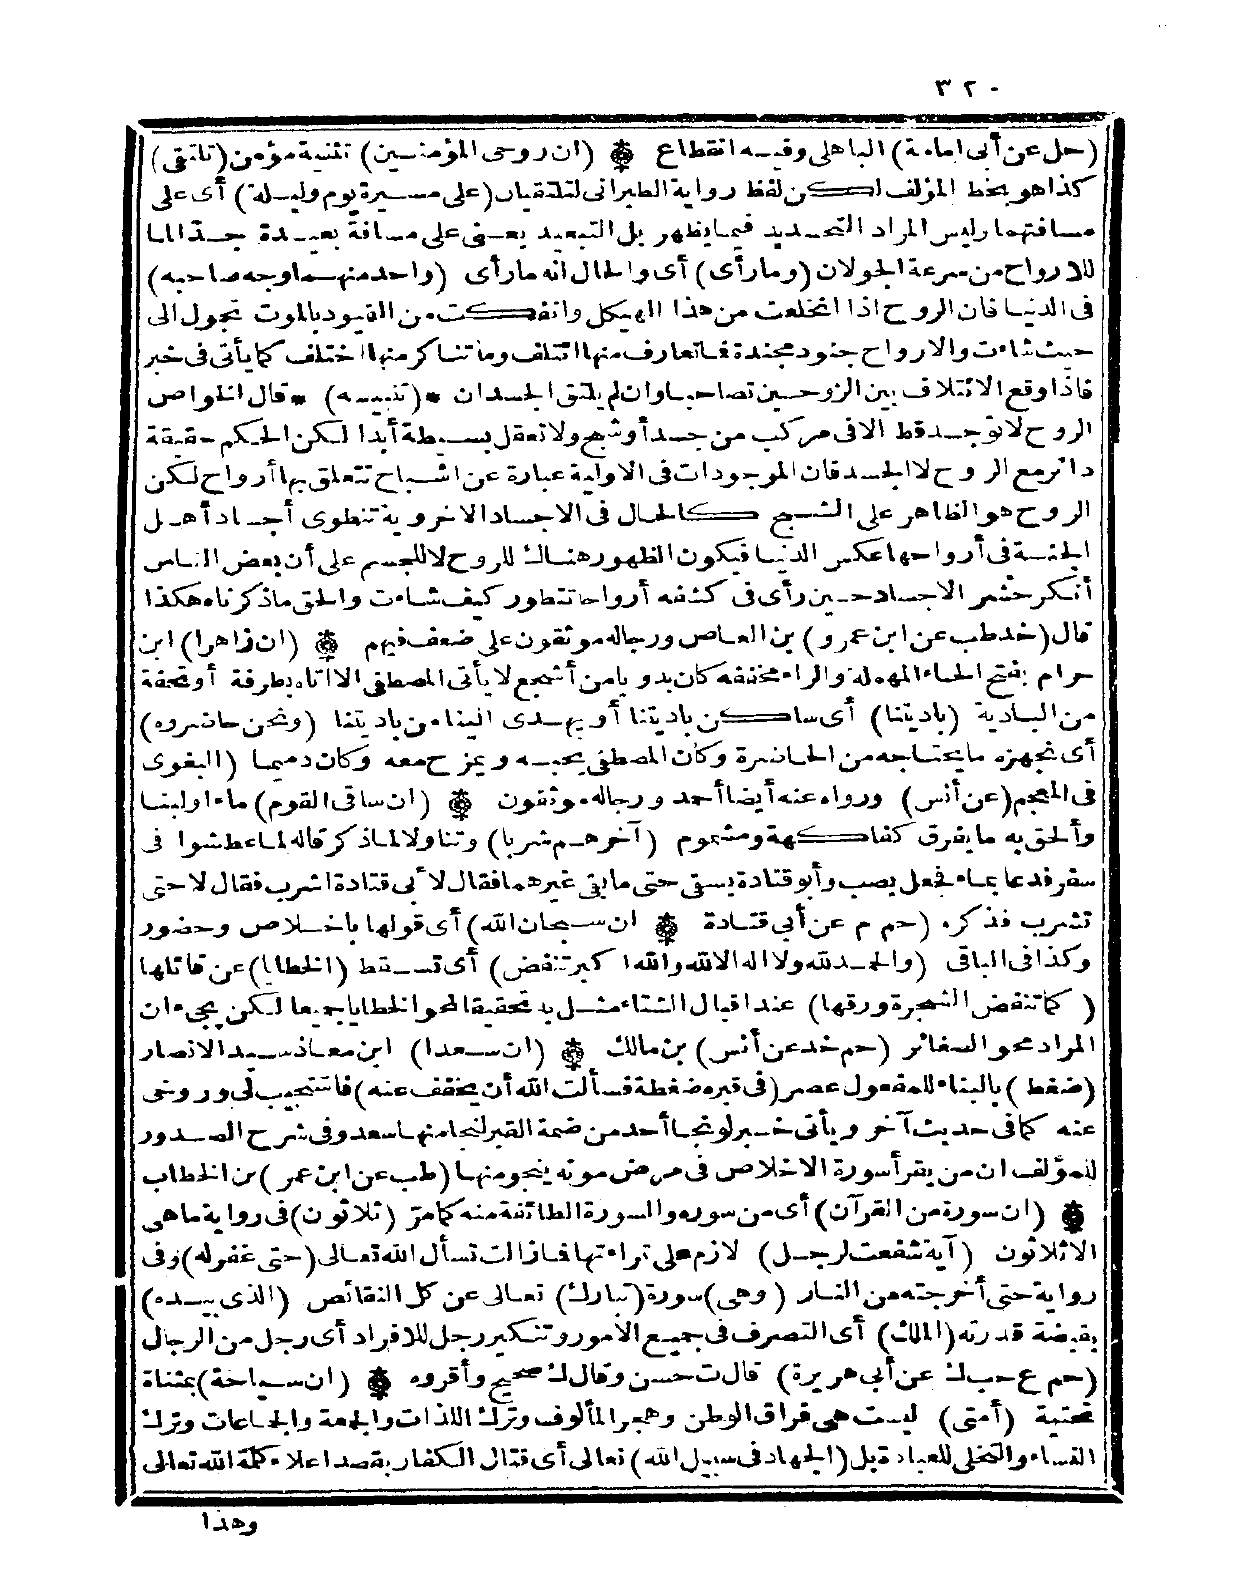 ٣٢٠
(حل عن أبى امامة) الباهلى وفيه انقطاع ۞ (ان روحى المؤمنين) تثنية مؤمن (تلتقى)
كذا هو بخط المؤلف لكن لفظ رواية الطبرانى لتلتقيان (على مسيرة يوم وليلة) أى على
مسافتهما وليس المراد التحديد فيما يظهر بل التبعيد يعنى على مسافة بعيدة جدا لما
للارواح من سرعة الجولان (وما رأى) أى والحال انه ما رأى (واحد منهما وجه صاحبه)
فى الدنيا فان الروح اذا انخلعت من هذا الهيكل وانفكت من القيود بالموت تجول الى
حيث شاءت والارواح جنود مجندة فما تعارف منها ائتلف وما تناكر منها اختلف كما يأتى فى خبر
فاذا وقع الائتلاف بين الروحين تصاحبا وان لم يلتق الجسدان *(تنبيه) * قال الخواص
الروح لا توجد قط الا فى مركب من جسد أو شبح ولا تعقل بسيطة أبدا لكن الحكم حقيقة
دائر مع الروح لا الجسد فان الموجودات فى الاولية عبارة عن اشباح تتعلق بها أرواح لكن
الروح هو الظاهر على الشبح كالحال فى الاجساد الاخروية تنطوى أجساد أهل
الجنة فى أرواحها عكس الدنيا فيكون الظهور هناك للروح لا للجسم على أن بعض الناس
أنكر حشر الاجساد حين رأى فى كشفه أرواحا تتطور كيف شاءت والحق ما ذكرناه هكذا
قال (خد طب عن ابن عمرو) بن العاص ورجاله موثقون على ضعف فيهم ۞ (ان زاهرا) ابن
حرام بفتح الحاء المهملة والراء مخففه كان بدويا من أشجع لا يأتى المصطفى الا أتاه بطرفة أو تحفة
من البادية (باديتنا) أى ساكن باديتنا أو يهدى الينا من باديتنا (ونحن حاضروه)
أى نجهزه ما يحتاجه من الحاضرة وكان المصطفى يحبه ويمزح معه وكان دميما (البغوى
فى المعجم (عن أنس) ورواه عنه أيضا أحمد ورجاله موثقون ۞ (ان ساقى القوم) ماء او لبنا
وألحق به ما يفرق كفاكهة ومشموم (آخرهم شربا) وتناولا لما ذكر قاله لما عطشوا فى
سفر فدعا بماء فجعل يصب وأبو قتادة يسقى حتى ما بقى غيرهما فقال لابى قتادة اشرب فقال لا حتى
تشرب فذكره (حم م عن أبي قتادة ۞ ان سبحان الله) أى قولها باخلاص وحضور
وكذا فى الباقى (والحمد لله ولا اله الا الله والله ا كبر تنفض) أى تسقط (الخطايا) عن قائلها
( كما تنفض الشجرة ورقها) عند اقبال الشتاء مثل به تحقيقا لمحو الخطايا جميعا لكن يجىء ان
المراد محو الصغائر (حم خد عن أنس) بن مالك ۞ (ان سعدا) ابن معاذ سيد الانصار
(ضغط) بالبناء للمفعول عصر (فى قبره ضغطة فسألت الله أن يخفف عنه) فاستجيب لى وروخى
عنه كما فى حديث آخر ويأتى خبر لو نجا أحد من ضمة القبر لنجا منها سعد وفى شرح الصدور
للمؤلف ان من يقرأ سورة الاخلاص فى مرض موته ينجو منها (طب عن ابن عمر) بن الخطاب
۞ (ان سورة من القرآن) أى من سوره والسورة الطائفة منه كما مرّ (ثلاثون) فى رواية ما هى
الا ثلاثون (آية شفعت لرجل) لازم على قراءتها فما زالت تسأل الله تعالى (حتى غفر له) وفى
رواية حتى أخرجته من النار (وهى) سورة (تبارك) تعالى عن كل النقائص (الذى بيده)
بقبضة قدرته (الملك) أى التصرف فى جميع الامور وتنكير رجل للافراد أى رجل من الرجال
(حم ع حب ك عن أبى هريرة) قال ت حسن وقال ك صحيح وأقروه ۞ (ان سياحة) بمثناة
تحتية (أمتى) ليست هى فراق الوطن وهجر المألوف وترك اللذات والجمعة والجماعات وترك
النساء والتخلى للعبادة بل (الجهاد فى سبيل الله) تعالى أى قتال الكفار بقصد اعلاء كلمة الله تعالى
وهذا